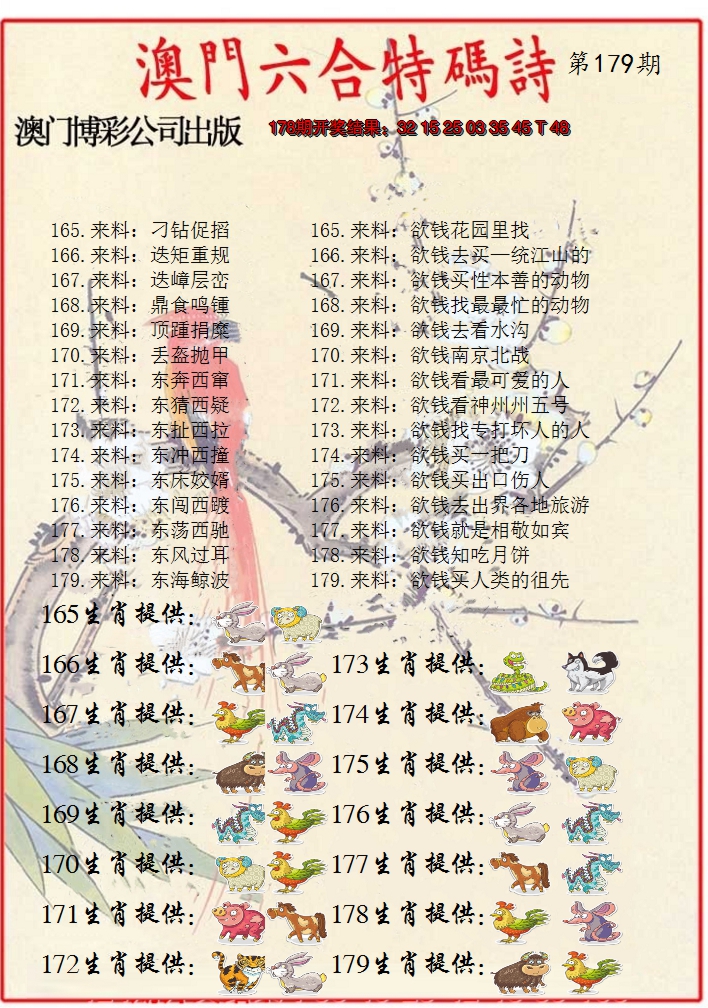 澳門六合特碼詩 第179期
澳门博彩公司出版 178期开奖结果：32 15 25 03 35 45 T 48
165.来料：刁钻促搯 165.来料：欲钱花园里找
166.来料：迭矩重规 166.来料：欲钱去买一统江山的
167.来料：迭嶂层峦 167.来料：欲钱买性本善的动物
168.来料：鼎食鸣锺 168.来料：欲钱找最最忙的动物
169.来料：顶踵捐糜 169.来料：欲钱去看水沟
170.来料：丢盔抛甲 170.来料：欲钱南京北战
171.来料：东奔西窜 171.来料：欲钱看最可爱的人
172.来料：东猜西疑 172.来料：欲钱看神州州五号
173.来料：东扯西拉 173.来料：欲钱找专打坏人的人
174.来料：东冲西撞 174.来料：欲钱买一把刀
175.来料：东床姣婿 175.来料：欲钱买出口伤人
176.来料：东闯西踱 176.来料：欲钱去出界各地旅游
177.来料：东荡西驰 177.来料：欲钱就是相敬如宾
178.来料：东风过耳 178.来料：欲钱知吃月饼
179.来料：东海鲸波 179.来料：欲钱买人类的祖先
165生肖提供：
166生肖提供： 173生肖提供：
167生肖提供： 174生肖提供：
168生肖提供： 175生肖提供：
169生肖提供： 176生肖提供：
170生肖提供： 177生肖提供：
171生肖提供： 178生肖提供：
172生肖提供： 179生肖提供：